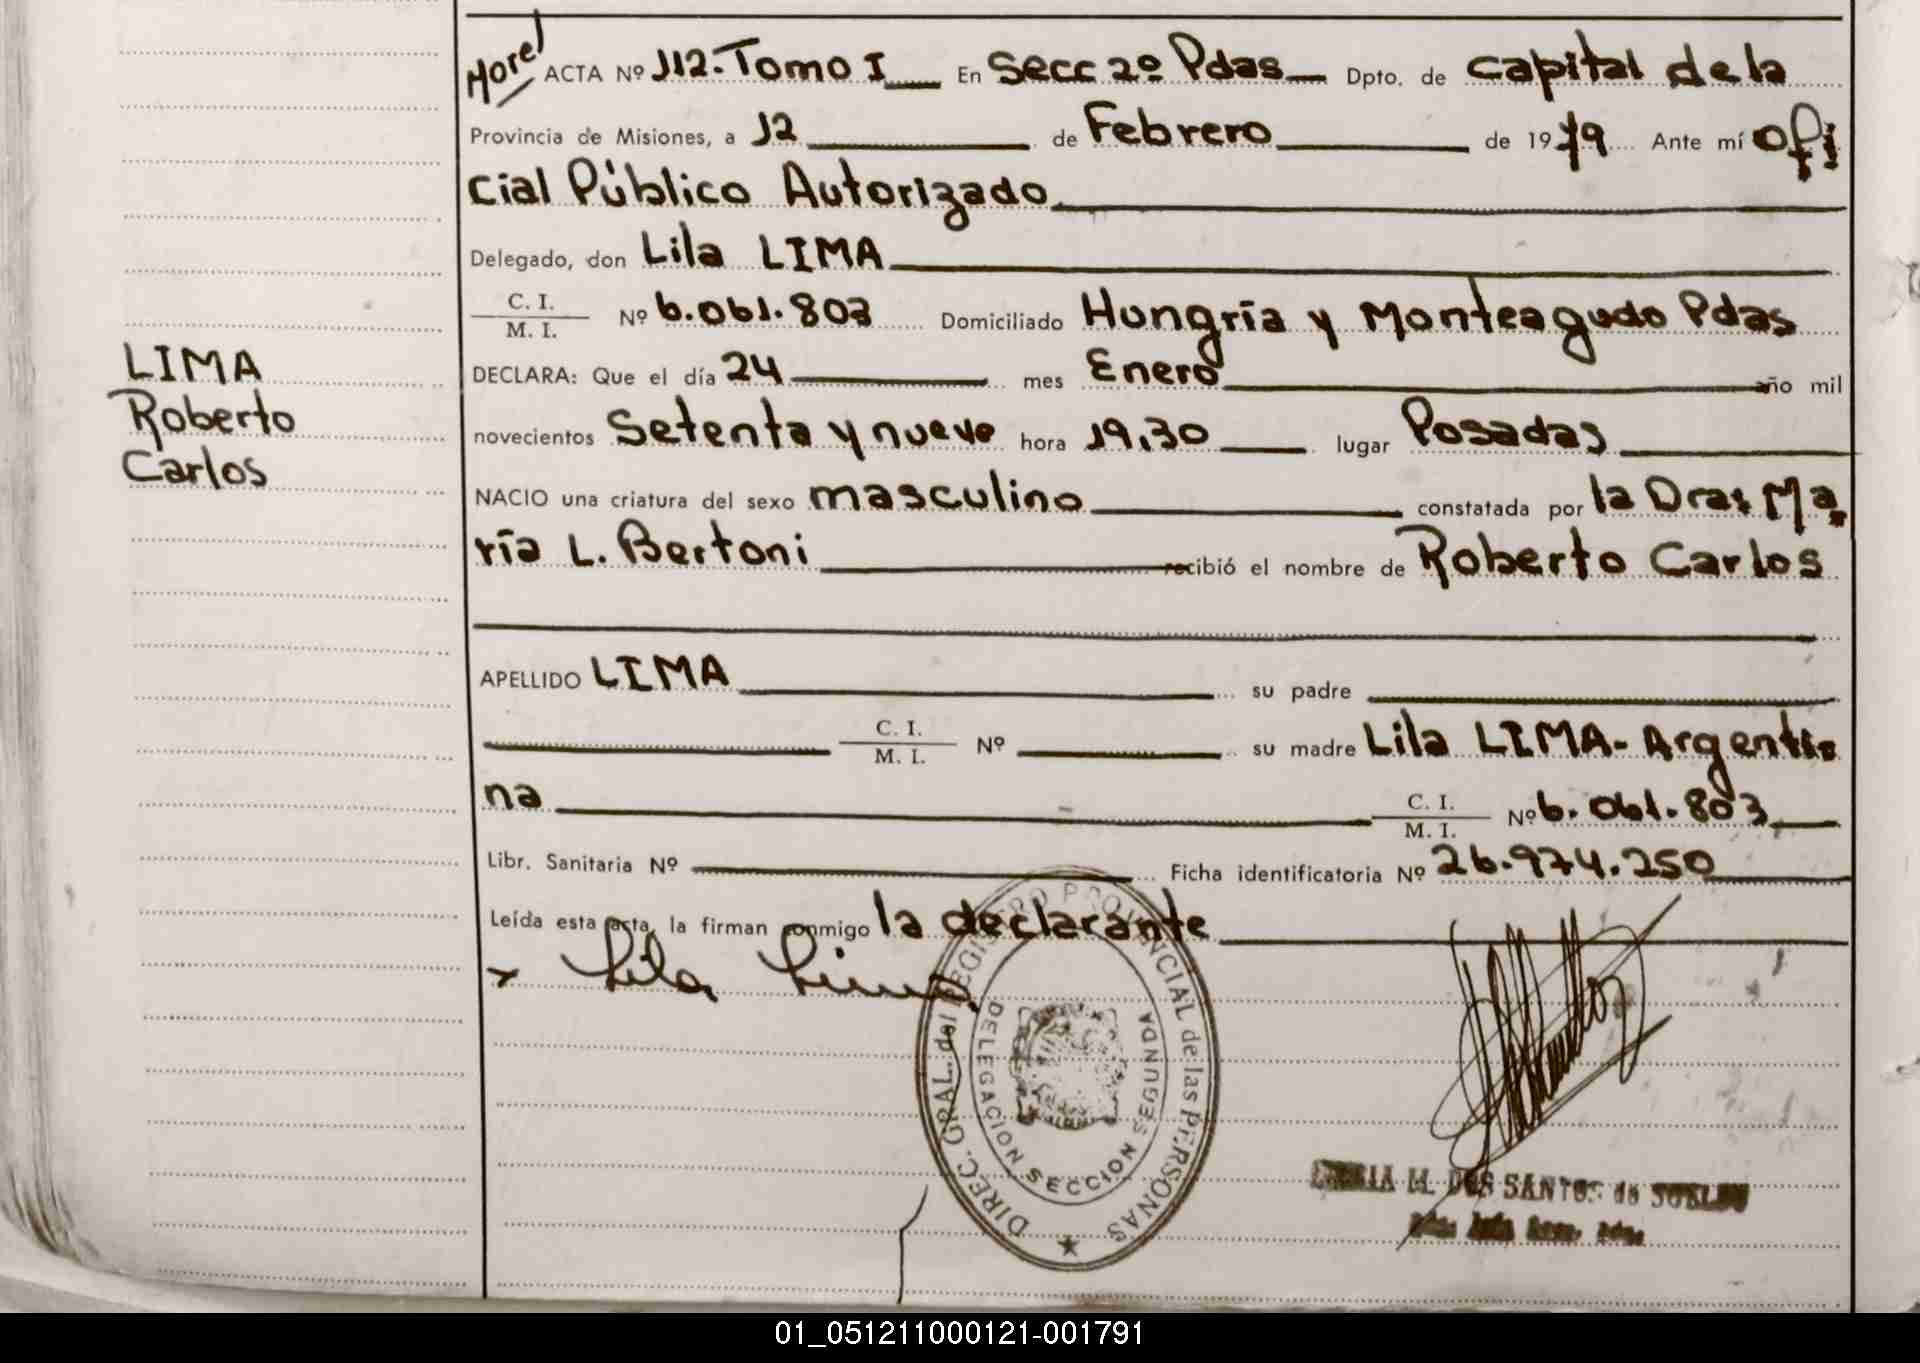 Morel ACTA Nº 112. Tomo I En Secc 2º Pdas Dpto. de Capital de la
Provincia de Misiones, a 12 de Febrero de 1979 Ante mí Ofi
cial Público Autorizado
Delegado, don Lila LIMA
C. I.
M. I. Nº 6.061.803 Domiciliado Hungría y Monteagudo Pdas
DECLARA: Que el día 24 mes Enero año mil
novecientos Setenta y nueve hora 19,30 lugar Posadas
NACIO una criatura del sexo masculino constatada por la Dra. Ma
ría L. Bertoni recibió el nombre de Roberto Carlos
APELLIDO LIMA su padre
C. I.
M. I. Nº su madre Lila LIMA- Argenti-
na C. I.
M. I. Nº 6.061.803
Libr. Sanitaria Nº Ficha identificatoria Nº 26.974.250
Leída esta acta, la firman conmigo la declarante
x Lila Lima
LIMA
Roberto
Carlos
DIREC. GRAL. del REGISTRO PROVINCIAL de las PERSONAS
DELEGACION SECCION SEGUNDA
M. DOS SANTOS de
01_051211000121-001791